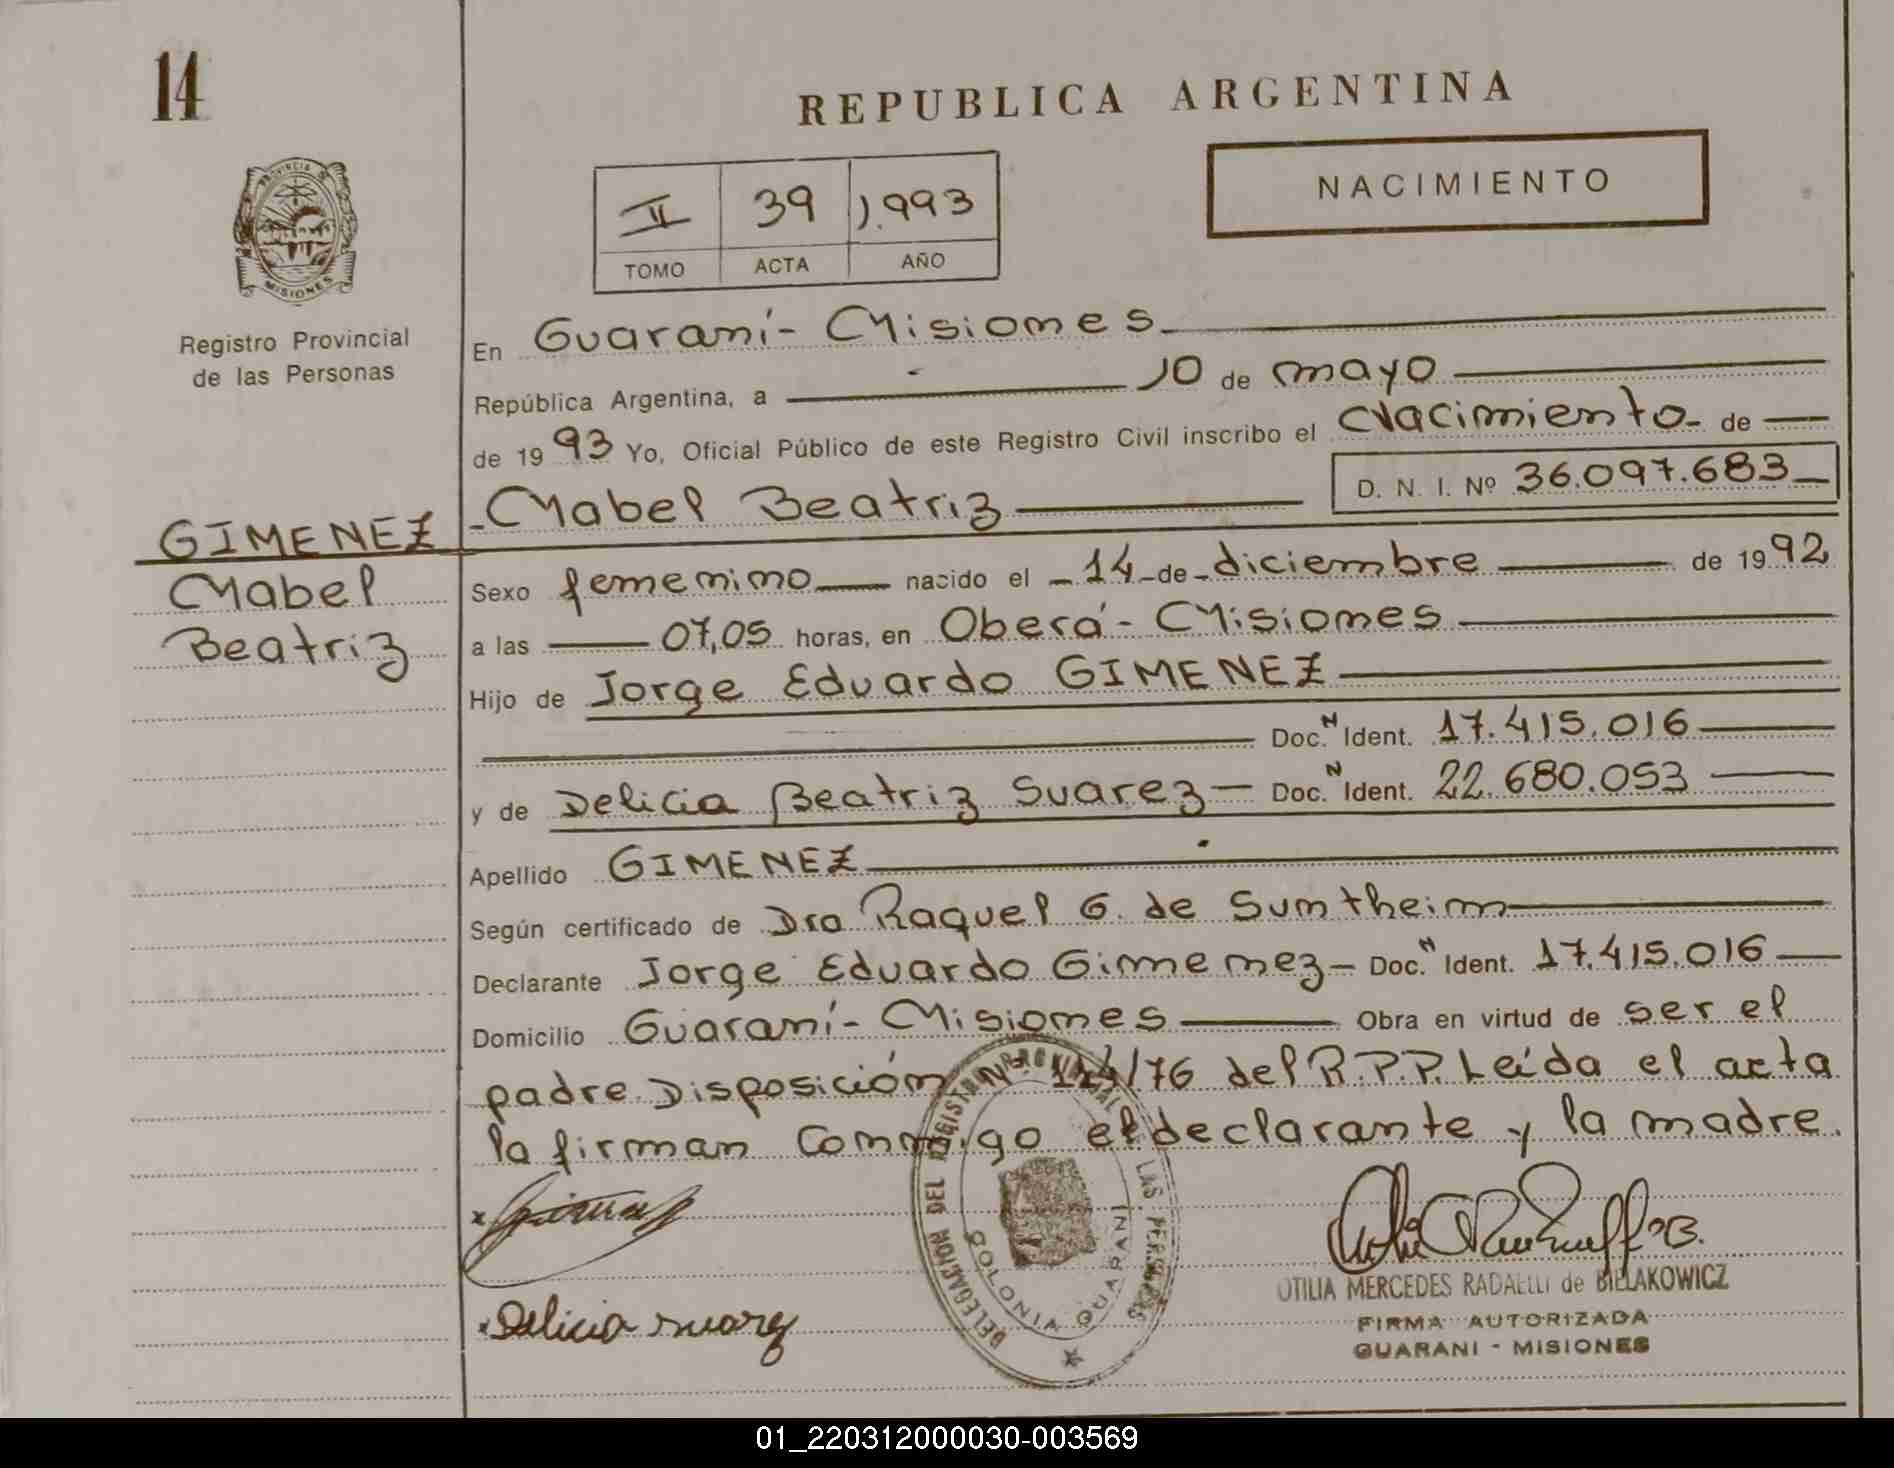 14
REPUBLICA ARGENTINA
NACIMIENTO
II 39 1.993
TOMO ACTA AÑO
PROVINCIA DE
MISIONES
Registro Provincial
de las Personas
En Guaraní- Misiones
República Argentina, a 10 de mayo
de 1993 Yo, Oficial Público de este Registro Civil inscribo el Nacimiento- de
D. N. I. Nº 36.097.683
GIMENEZ
Mabel
Beatriz
-Mabel Beatriz
Sexo femenino nacido el -14-de-diciembre de 1992
a las 07,05 horas, en Oberá- Misiones
Hijo de Jorge Eduardo GIMENEZ
Doc.N Ident. 17.415.016
y de Delicia Beatriz Suarez- Doc.N Ident. 22.680.053
Apellido GIMENEZ
Según certificado de Dra Raquel G. de Sumtheim
Declarante Jorge Eduardo Gimenez- Doc.N Ident. 17.415.016
Domicilio Guaraní- Misiones Obra en virtud de ser el
padre. Disposición Nº /76 del R.P.P. Leída el acta
la firman conmigo el declarante y la madre.
Delicia suarez
DELEGACION DEL REGISTRO PROVINCIAL DE LAS PERSONAS
COLONIA GUARANI
OTILIA MERCEDES RADAELLI de BIELAKOWICZ
FIRMA AUTORIZADA
GUARANI - MISIONES
01_220312000030-003569